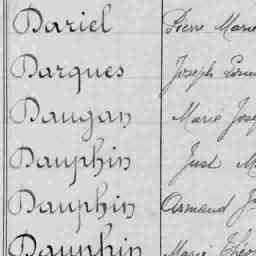 Dariel Pierre Marie
Darques Joseph
Daugan Marie Jose
Dauphin Just M
Dauphin Armand J
Dauphin Marie Théo